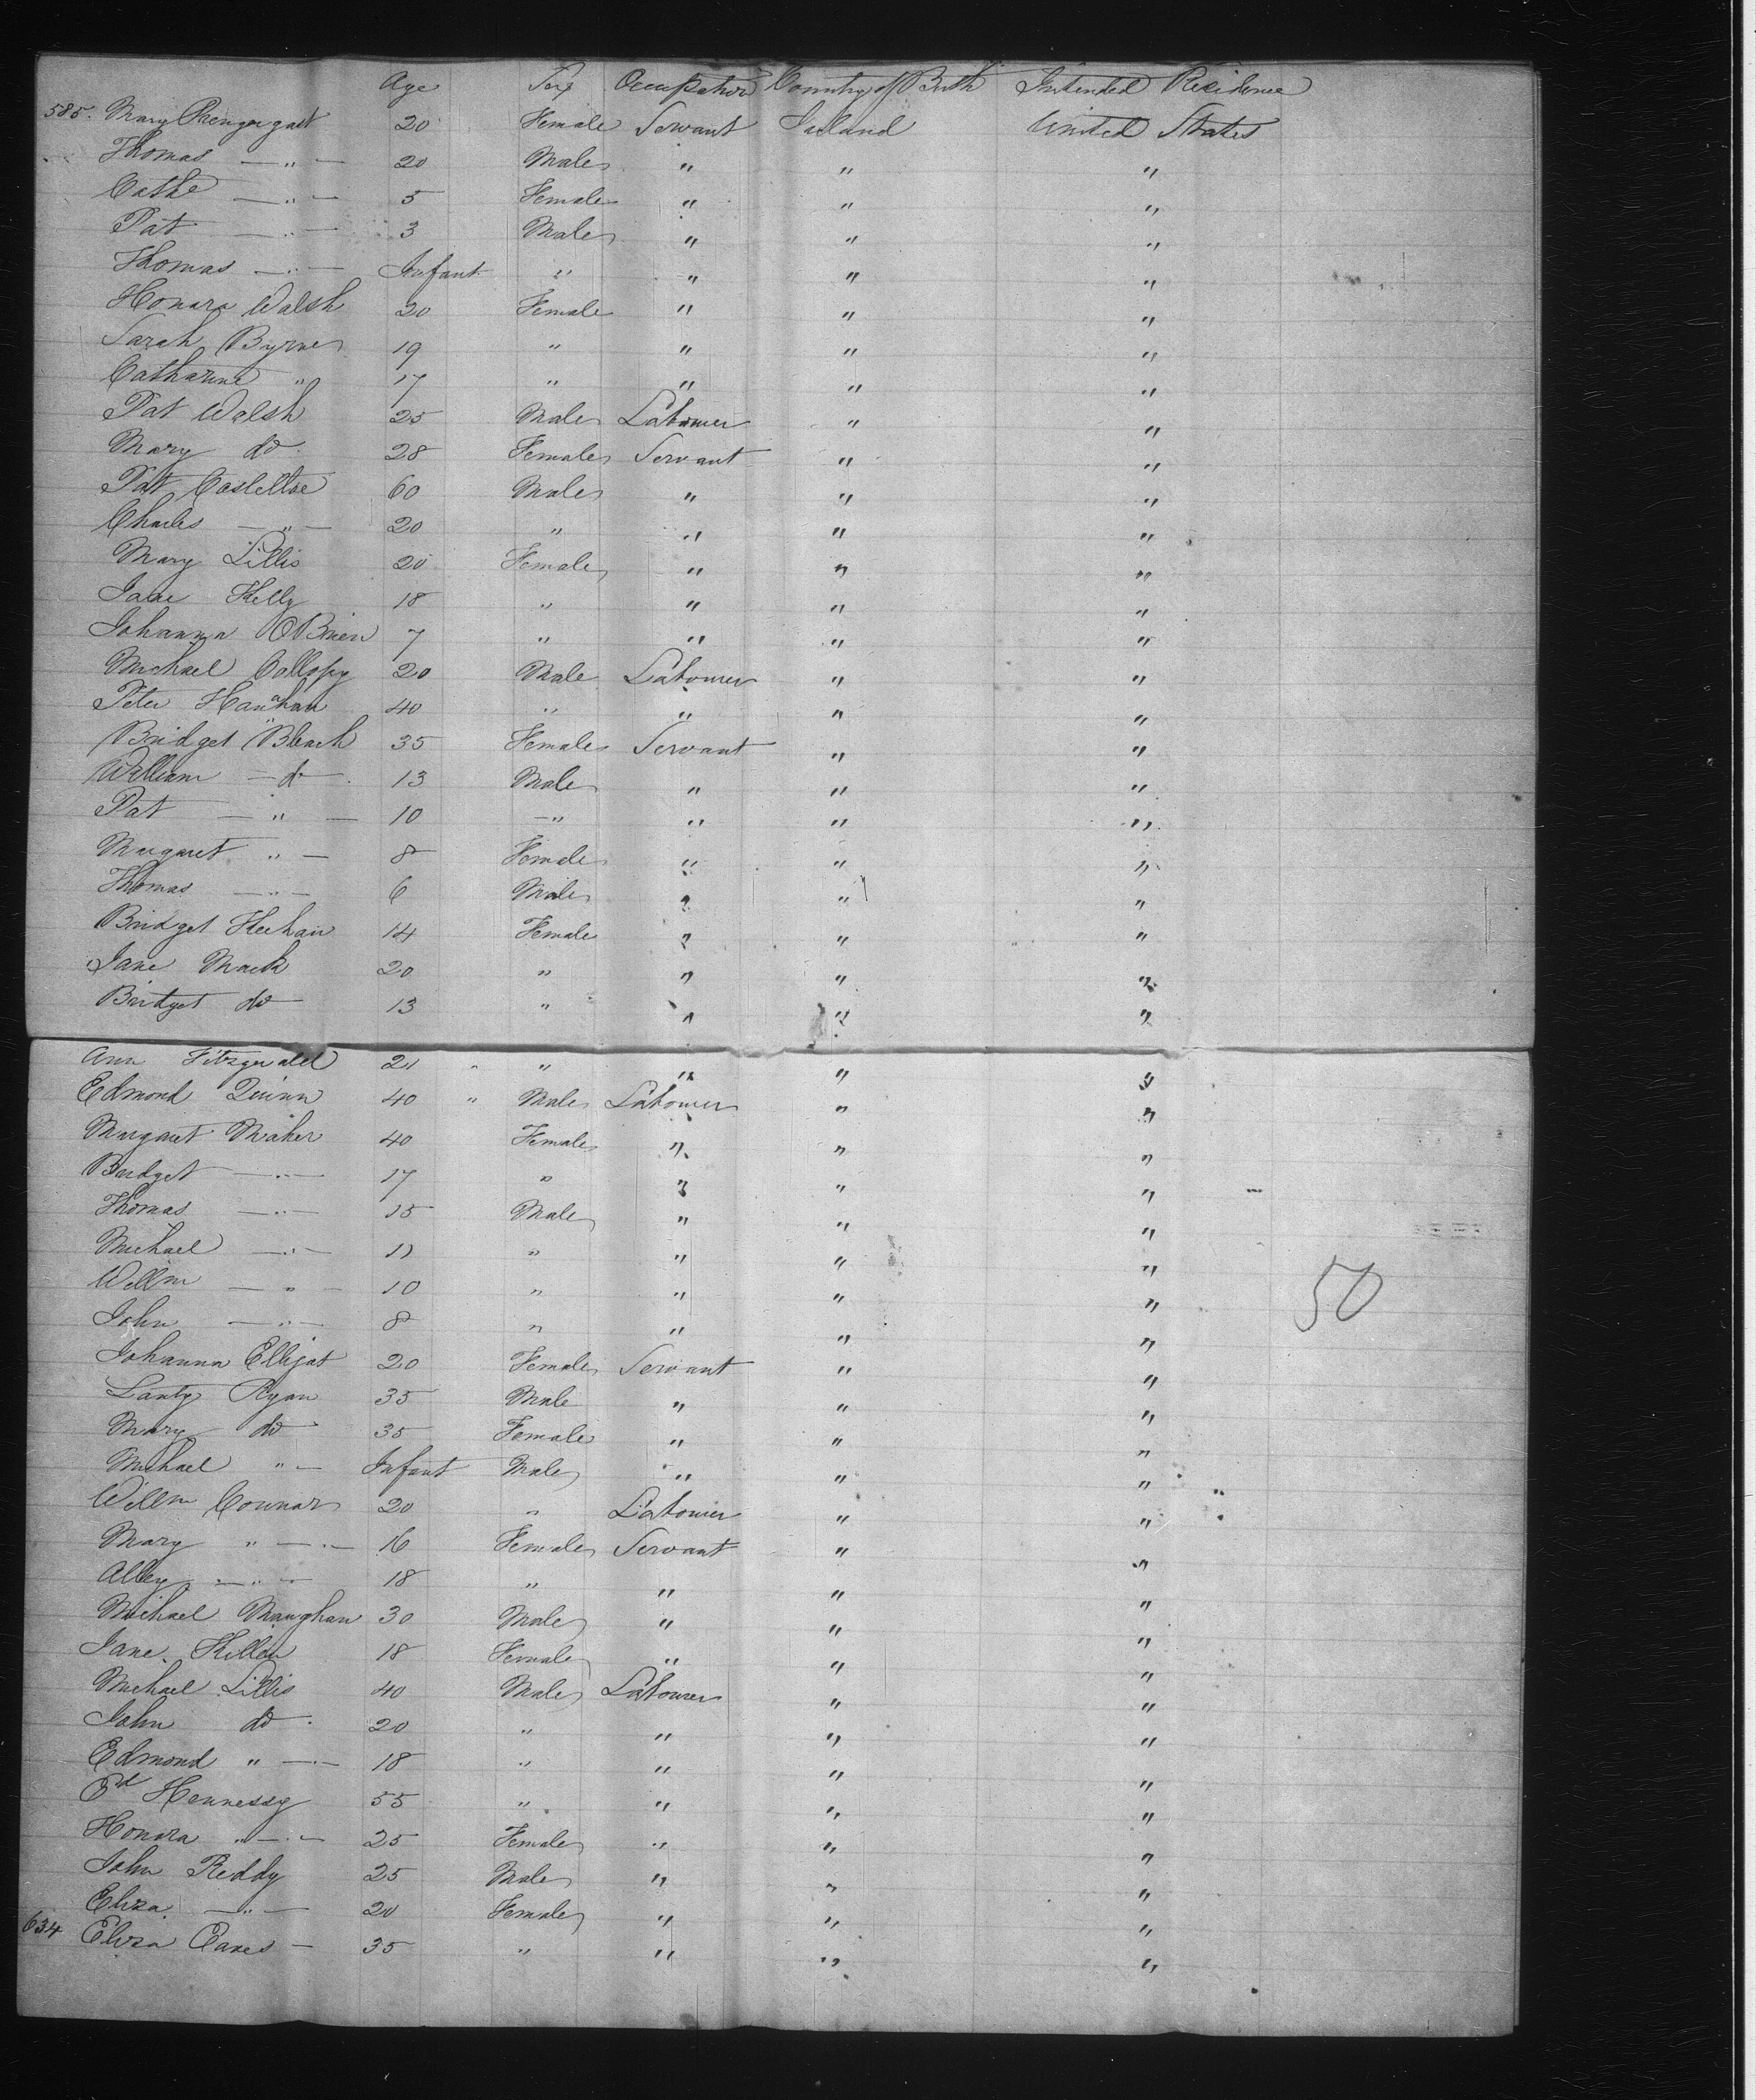 Age Sex Occupation Country of Birth Intended Residence
585. Mary Prengergast 20 Female Servant Ireland United States
Thomas — " — 20 Male " " "
Cathe — " — 5 Female " " "
Pat — " — 3 Male " " "
Thomas — " — Infant " " " "
Honara Walsh 20 Female " " "
Sarah Byrne 19 " " " "
Catharine " 17 " " " "
Pat Walsh 25 Male Labourer " "
Mary do 28 Female Servant " "
Pat 60 Male " " "
Charles — " — 20 " " " "
Mary Lillis 20 Female " " "
Jane Kelly 18 " " " "
Johanna OBrien 7 " " " "
Michael Callopy 20 Male Labourer " "
Peter Hanahan 40 " " " "
Bridget Bleach 35 Female Servant " "
William — do — 13 Male " " "
Pat — " — 10 — " " " "
Margaret " — 8 Female " " "
Thomas — " — 6 Male " " "
Bridget Keehan 14 Female " " "
Jane Mack 20 " " " "
Bridget do 13 " " " "
Ann Fitzgerald 21 " " " "
Edmond Quinn 40 " Male Labourer " "
Margaret Maher 40 Female " " "
Bridget — " — 17 " " " "
Thomas — " — 15 Male " " "
Michael — " — 11 " " " "
Willm — " — 10 " " " "
50
John — " — 8 " " " "
Johanna Elligat 20 Female Servant " "
Lanty Ryan 35 Male " " "
Mary do 35 Female " " "
Michael " — Infant Male " " "
Willm Connar 20 " Labourer " "
Mary " — " — 16 Female Servant " "
Alley — " — 18 " " " "
Michael Maughan 30 Male " " "
Jane Killen 18 Female " " "
Michael Lillis 40 Male Labourer " "
John do 20 " " " "
Edmond " — " — 18 " " " "
Ed Hennessy 55 " " " "
Honara " — " — 25 Female " " "
John Reddy 25 Male " " "
Eliza — " — 20 Female " " "
634 Eliza — 35 " " " "